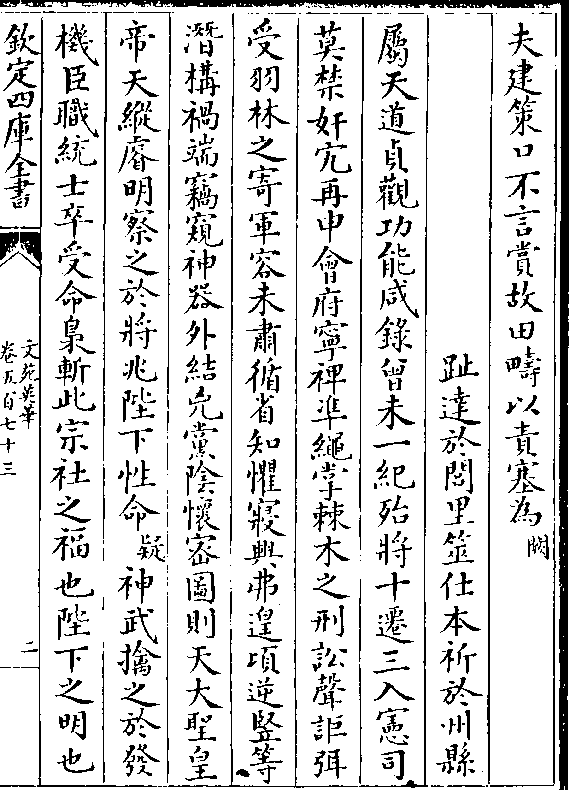 夫建策口不言賞故田疇以責塞為闕
趾達於閭里筮仕本祈於州縣
屬天道貞觀功能咸錄曾未一紀殆將十遷三入憲司
莫禁奸宄再申會府寧裨準繩掌棘木之刑訟聲詎弭
受羽林之寄軍容未肅循省知懼寢興弗遑項逆豎等
潛構禍端竊窺神器外結兇黨陰懷密圖則天大聖皇
帝天縱睿明察之於將兆陛下性命疑神武擒之於發
機臣職統士卒受命梟斬此宗社之福也陛下之明也
欽定四庫全書
文苑英華
卷五百七十三
二